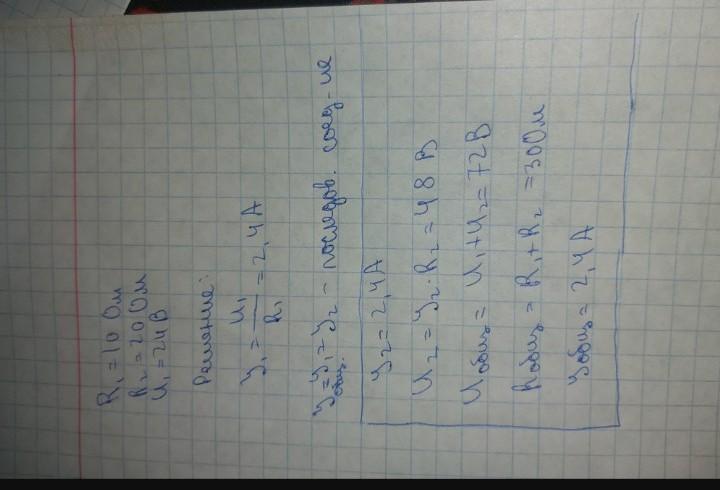 R₁ = 10 Ом
R₂ = 20 Ом
U₁ = 24 В
Решение:
У₁ = U₁/R₁ = 2,4 А
Уобщ. = У₁ = У₂ - последов. соед-ие
У₂ = 2,4 А
U₂ = У₂·R₂ = 48 В
Uобщ = U₁ + U₂ = 72 В
Rобщ = R₁ + R₂ = 30 Ом
Уобщ = 2,4 А